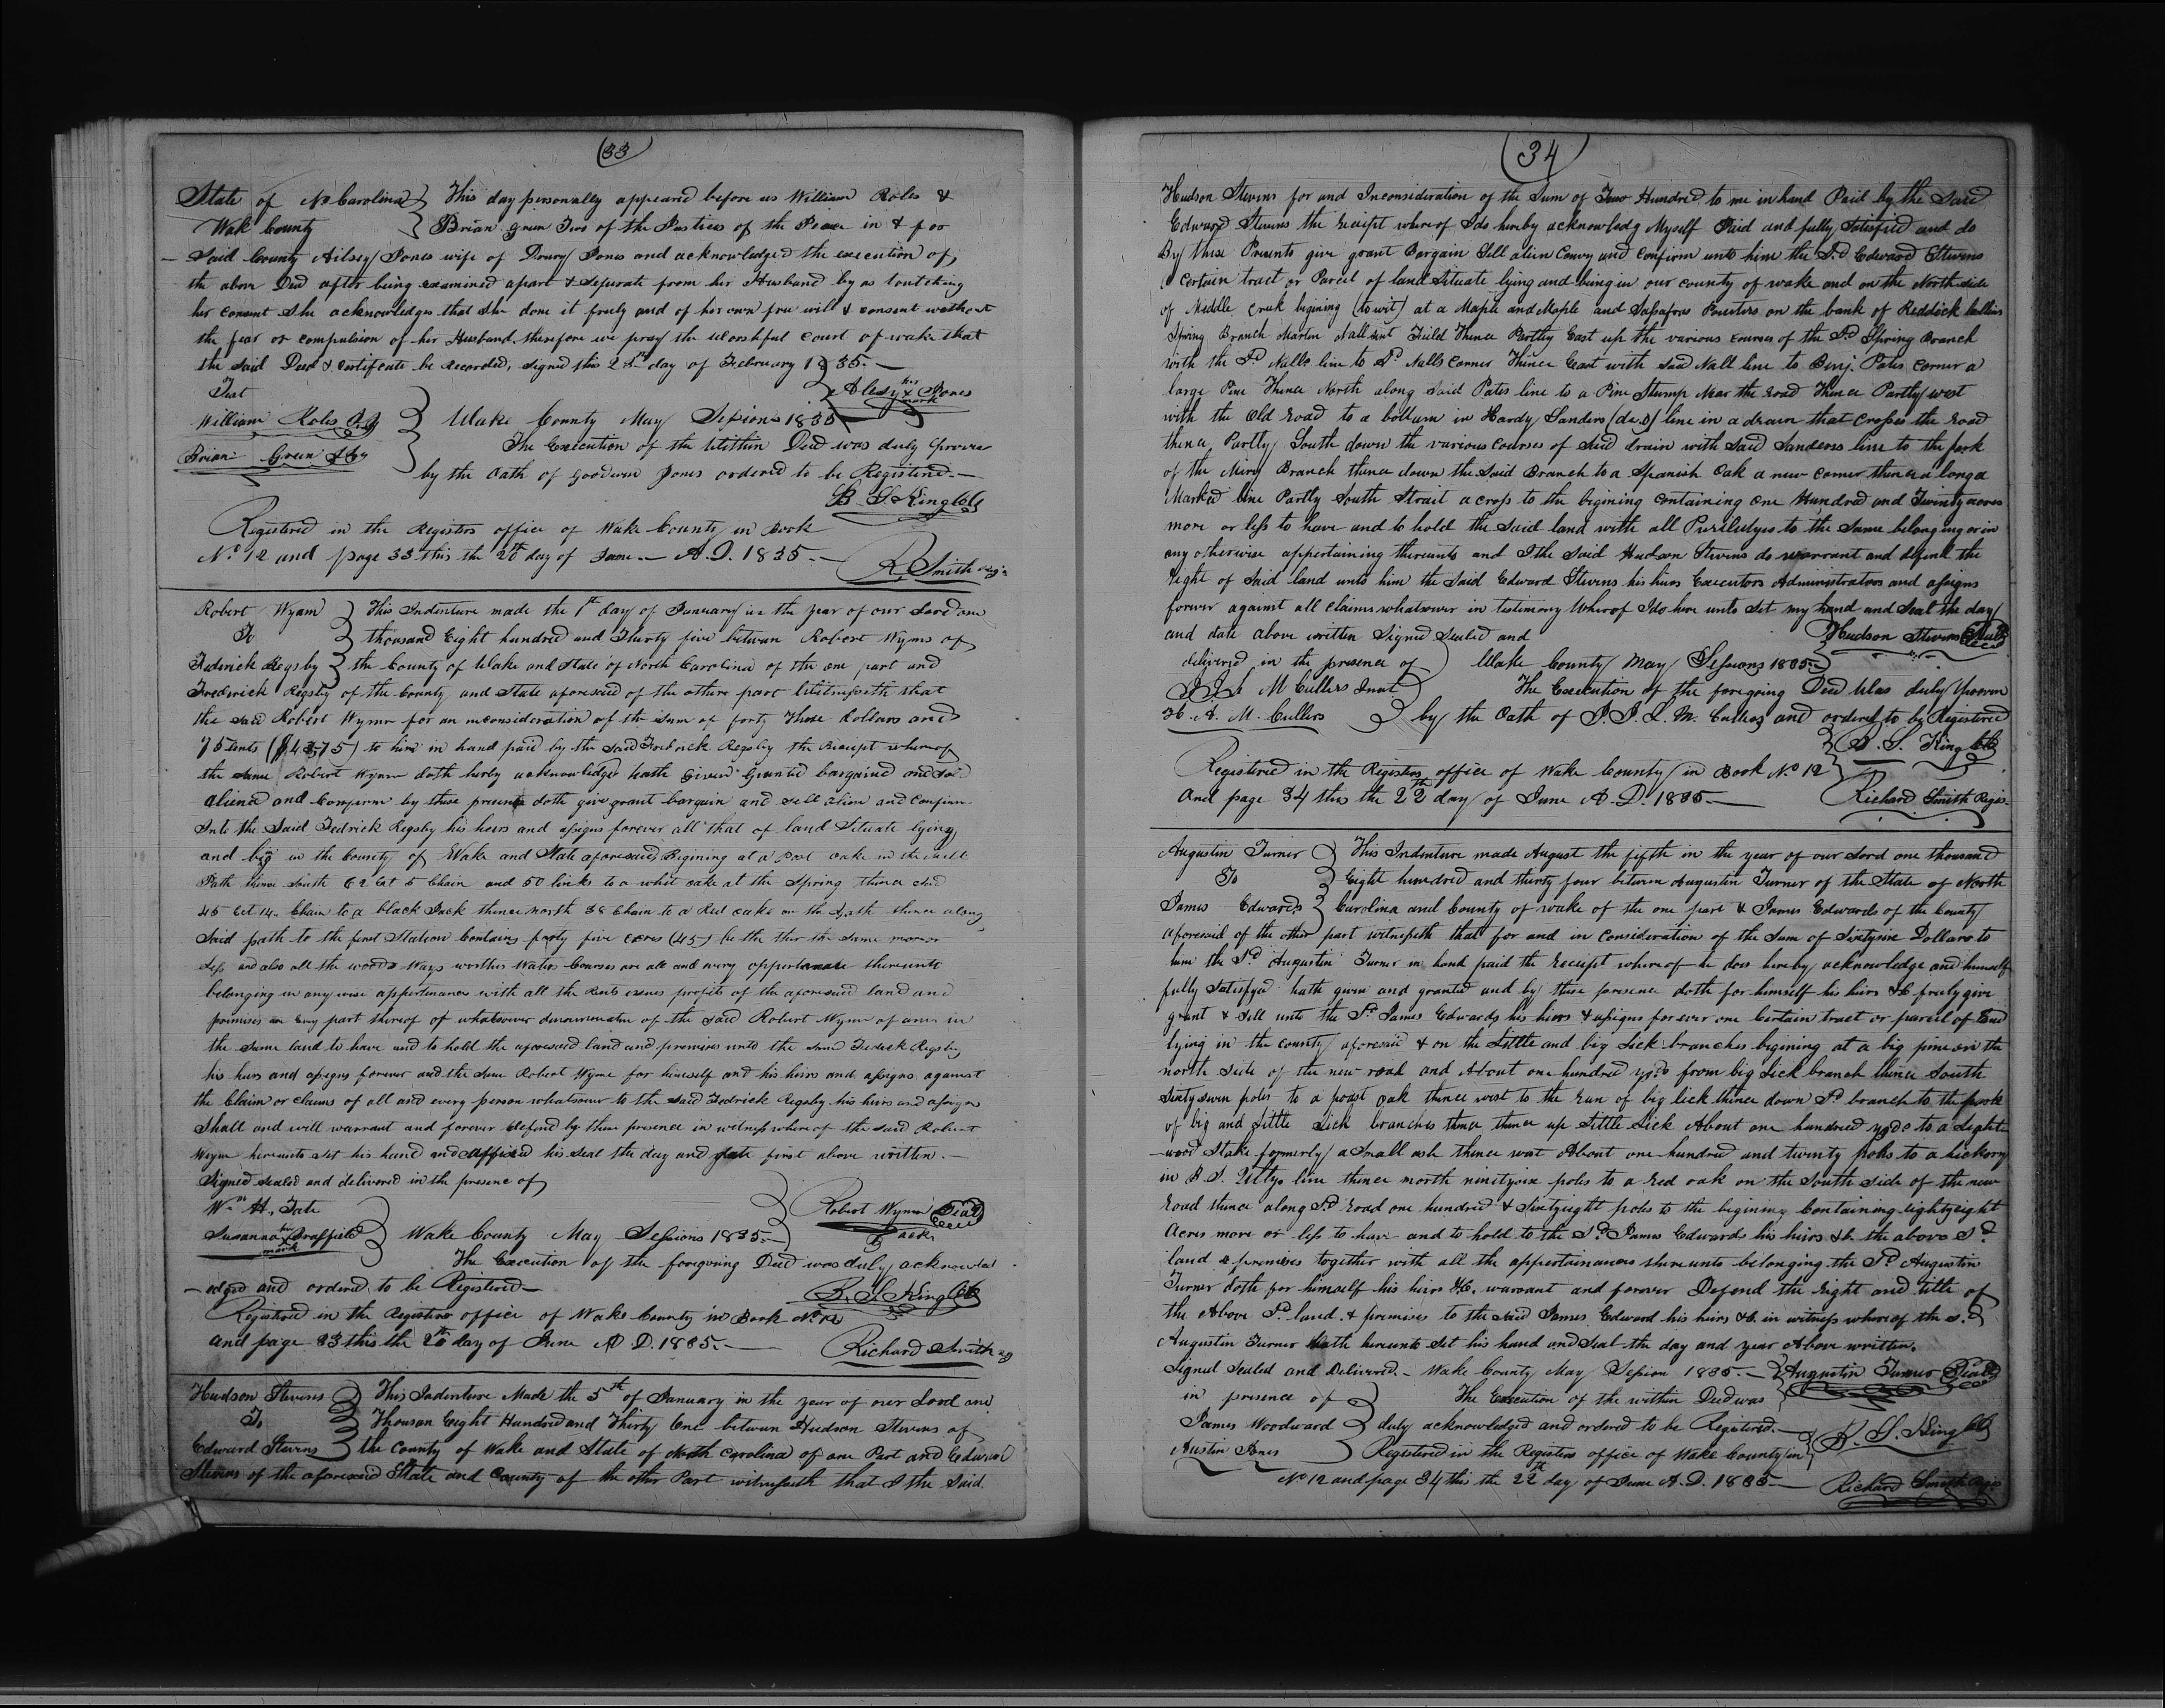 (33)
State of No Carolina } This day personally appeared before us William Roles &
Wak County } Brian green Two of the Justices of the Peace in & for
said County Ailsey Jones wife of Drury Jones and acknowledged the execution of
the above Deed after being examined apart & seperate from her Husband by as toutching
her consent She acknowledges that She done it freely and of her own free will & consent without
the fear or compulsion of her Husband therefore we pray the worshful court of wake that
the said Deed & certificate be recorded, signed this day of February 1835.—
Test
Alesy her x mark Jones
William Roles
Brian Green
Wake County May Sessions 1835
The Execution of the within Deed was duly proven
by the Oath of Goodwin Jones ordered to be Registered.—
B S King Clk
Registered in the Registers office of Wake County in Book
No. 12 and page 33 this the 20th day of June.— A.D. 1835.—
R. Smith
Robert Wyam } This Indenture made the 1st day of January in the year of our Lord one
To } thousand Eight hundred and Thirty five between Robert Wymn of
Fedrick Regsby } the County of Wake and State of North Carolina of the one part and
Frederick Regsby of the County and State aforesaid of the othere part Witnesseth that
the said Robert Wymn for an inconsideration of the sum of forty Three dollars and
75 cents ($43.75) to him in hand paid by the said Frederick Regsby the Receipt whereof
the same Robert Wymn doth herby acknowledge hath Given Granted bargained and
aliened and Comfirm by these presents doth give grant bargain and sell alien and confirm
Into the Said Fedrick Regsby his heirs and assigns forever all that of land Situate lying
and big in the County of Wake and State aforesaid Begining at a Post oake in the
Path thence South 62 5 Chain and 50 links to a whit oake at the Spring thence
45 14 Chain to a black Jack thence north 38 Chain to a Red oake on the path thence along
Said path to the first Station Containg forty five acres (45) be the same more or
less and also all the woods Ways Water Courses are all and every thereunto
belonging in any wise appertenances with all the Rents profits of the aforesaid land and
premises every part thereof of whatsoever of the said Robert Wymn of in
the same land to have and to hold the aforesaid land and premises unto the Fedrick Regsby
his heirs and assigns forever and the Robert Wyme for himself and his heirs and assigns against
the Claim or claims of all and every person whatsoever to the said Fedrick Regsby his heirs and assigns
Shall and will warrant and forever defend by these presence in witness whereof the said Robert
Wyme hereunto set his hand and affixed his seal the day and date first above written.—
Signed sealed and delivered in the presence of
Wm H. Tate
Robert Wymn Seal
Susanna her x mark
Wake County May Sessions 1835.—
The Execution of the foregoing Deed was duly acknowled
—edged and ordered to be Registered—
B. S. King Clk
Registered in the Registers office of Wake County in Book No. 12
and page 33 this the 20th day of June A D. 1835.—
Richard Smith
Hudson Stevens } This Indenture Made the 5th of January in the year of our Lord one
To } Thousan Eight Hundred and Thirty One between Hudson Stevens of
Edward Stevens } the County of Wake and State of North Carolina of one Part and Edward
Stevens of the aforesaid State and County of the other Part witnesseth that I the Said
34
Hudson Stevens for and Inconsideration of the Sum of Two Hundred to me in hand Paid by the Said
Edward Stevens the receipt whereof I do hereby acknowledg Myself Paid and fully Satisfied and do
By these Presents give grant Bargain Sell alien Convey and Confirm unto him the Sd. Edward Stevens
a certain tract or Parcel of land Situate lying and being in our county of wake and on the North side
of Middle creek begining (to wit) at a Maple and Maple and Sassafras Pointers on the bank of Reddick
Spring Branch Martin Nall Field Thence Parttley East up the various courses of the Sd. Spring Branch
with the Sd. Nalls line to Sd. Nalls Corner Thence East with said Nall line to Benj. Pates corner a
large Pine Thence North along Said Pates line to a Pine Stump Near the road Thence Partley west
with the Old road to a in Hardy Sanders (decd) line in a drean that crosses the road
thence Partley South down the various courses of Said drain with Said Sanders line to the fork
of the Miry Branch thence down the Said Branch to a Spanish Oak a new corner thence a long a
Marked line Partly South Strait a cross to the begining containing one Hundred and Twenty acres
more or less to have and to hold the Said land with all to the Same belonging or in
any otherwise appertaining thereunto and I the Said Hudson Stevens do warrant and defend the
right of Said land unto him the Said Edward Stevens his heirs Executors Administrators and assigns
forever against all claims whatsoever in testimony Whereof I do here unto Set my hand and Seal the day
and date above written Signed Sealed and
Hudson Stevens Seal
delivered in the presence of
J J L M Cullers Jurat
H A. M. Cullers
Wake County May Sessions 1835.
The Execution of the foregoing Deed Was duly Proven
by the Oath of J. J. L. M. Cullers and ordered to be Registered
B. S. King Clk
Registered in the Registers office of Wake County in Book No. 12
and page 34 this the 22th day of June A. D. 1835.—
Richard Smith Regis.
Augustin Turner } This Indenture made August the fifth in the year of our Lord one thousand
To } Eight hundred and thirty four between Augustin Turner of the State of North
James Edwards } Carolina and County of wake of the one part & James Edwards of the County
aforesaid of the other part witnesseth that for and in consideration of the sum of Dollars to
him the Sd. Augustin Turner in hand paid the receipt whereof he does hereby acknowledge and himself
fully satisfyed hath given and granted and by these presence doth for himself his heirs &c freely give
grant & sell unto the Sd. James Edwards his heirs & assigns forever one Certain tract or parcel of land
lying in the county aforesaid & on the Little and big Lick branches begining at a big pine on the
north side of the new road and About one hundred yds from big Lick branch thence South
Sixty seven poles to a poast oak thence west to the run of big lick thence down Sd. branch to the fork
of big and Little Lick branches thence thence up Little Lick About one hundred yds to a Light
—wood Stake formerly a Small ash thence west About one hundred and twenty poles to a hickory
in B. S. Utlys line thence north ninety six poles to a red oak on the South side of the new
road thence along Sd. road one hundred & Sixty eight poles to the begining Containing eighty eight
Acres more or less to have and to hold to the Sd. James Edwards his heirs &c. the above Sd.
land & premises together with all the appertainances thereunto belonging the Sd. Augustin
Turner doth for himself his heirs &c. warrant and forever Defend the right and title of
the Above Sd. land & premises to the said James Edward his heirs &c. in witness whereof the s.d
Augustin Turner Hath hereunto set his hand and Seal the day and year Above written.
Signed Sealed and Delivered.— Wake County May Session 1835.— Augustin Turner Seal
in presence of } The Execution of the within Deed was
James Woodward } duly acknowledged and ordered to be Registered.— B. S. King Clk
Austin Jones } Registered in the Registers office of Wake County in
No 12 and page 34 this the 22th day of June A. D. 1835— Richard Smith Regis